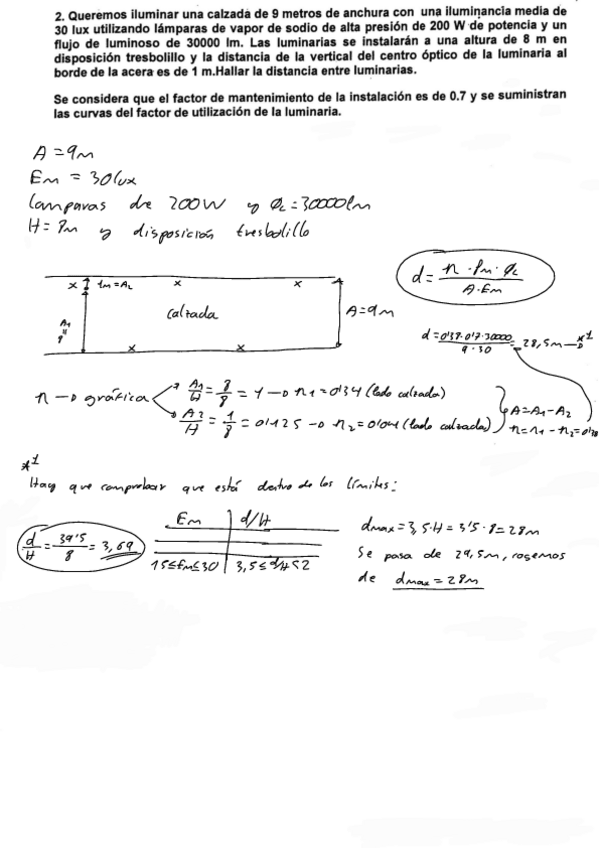 2. Queremos iluminar una calzada de 9 metros de anchura con una iluminancia media de
30 lux utilizando lámparas de vapor de sodio de alta presión de 200 W de potencia y un
flujo de luminoso de 30000 lm. Las luminarias se instalarán a una altura de 8 m en
disposición tresbolillo y la distancia de la vertical del centro óptico de la luminaria al
borde de la acera es de 1 m.Hallar la distancia entre luminarias.
Se considera que el factor de mantenimiento de la instalación es de 0.7 y se suministran
las curvas del factor de utilización de la luminaria.
A = 9m
Em = 30 lux
lamparas de 200W y φL = 30000lm
H = 8m y disposición tresbolillo
x 1m = A2 x x
calzada
A1
A = 9m
d = n · fm · φL / A · Em
9 · 30 = 28,5m
n → gráfica
A1/H = 8/8 = 1 → n1 = 0'34 (lado calzada)
A2/H = 1/8 = 0'125 → n2 = 0'04 (lado calzada)
A = A1 - A2
n = n1 - n2 =
x x
*1
Hay que comprobar que está dentro de los límites:
Em d/H
15 ≤ Em ≤ 30 3,5 ≤ d/H ≤ 2
d/H = 39'5/8 = 3,69
dmax = 3,5 · H = 3'5 · 8 = 28m
Se pasa de 29,5m, cogemos
de dmax = 28m